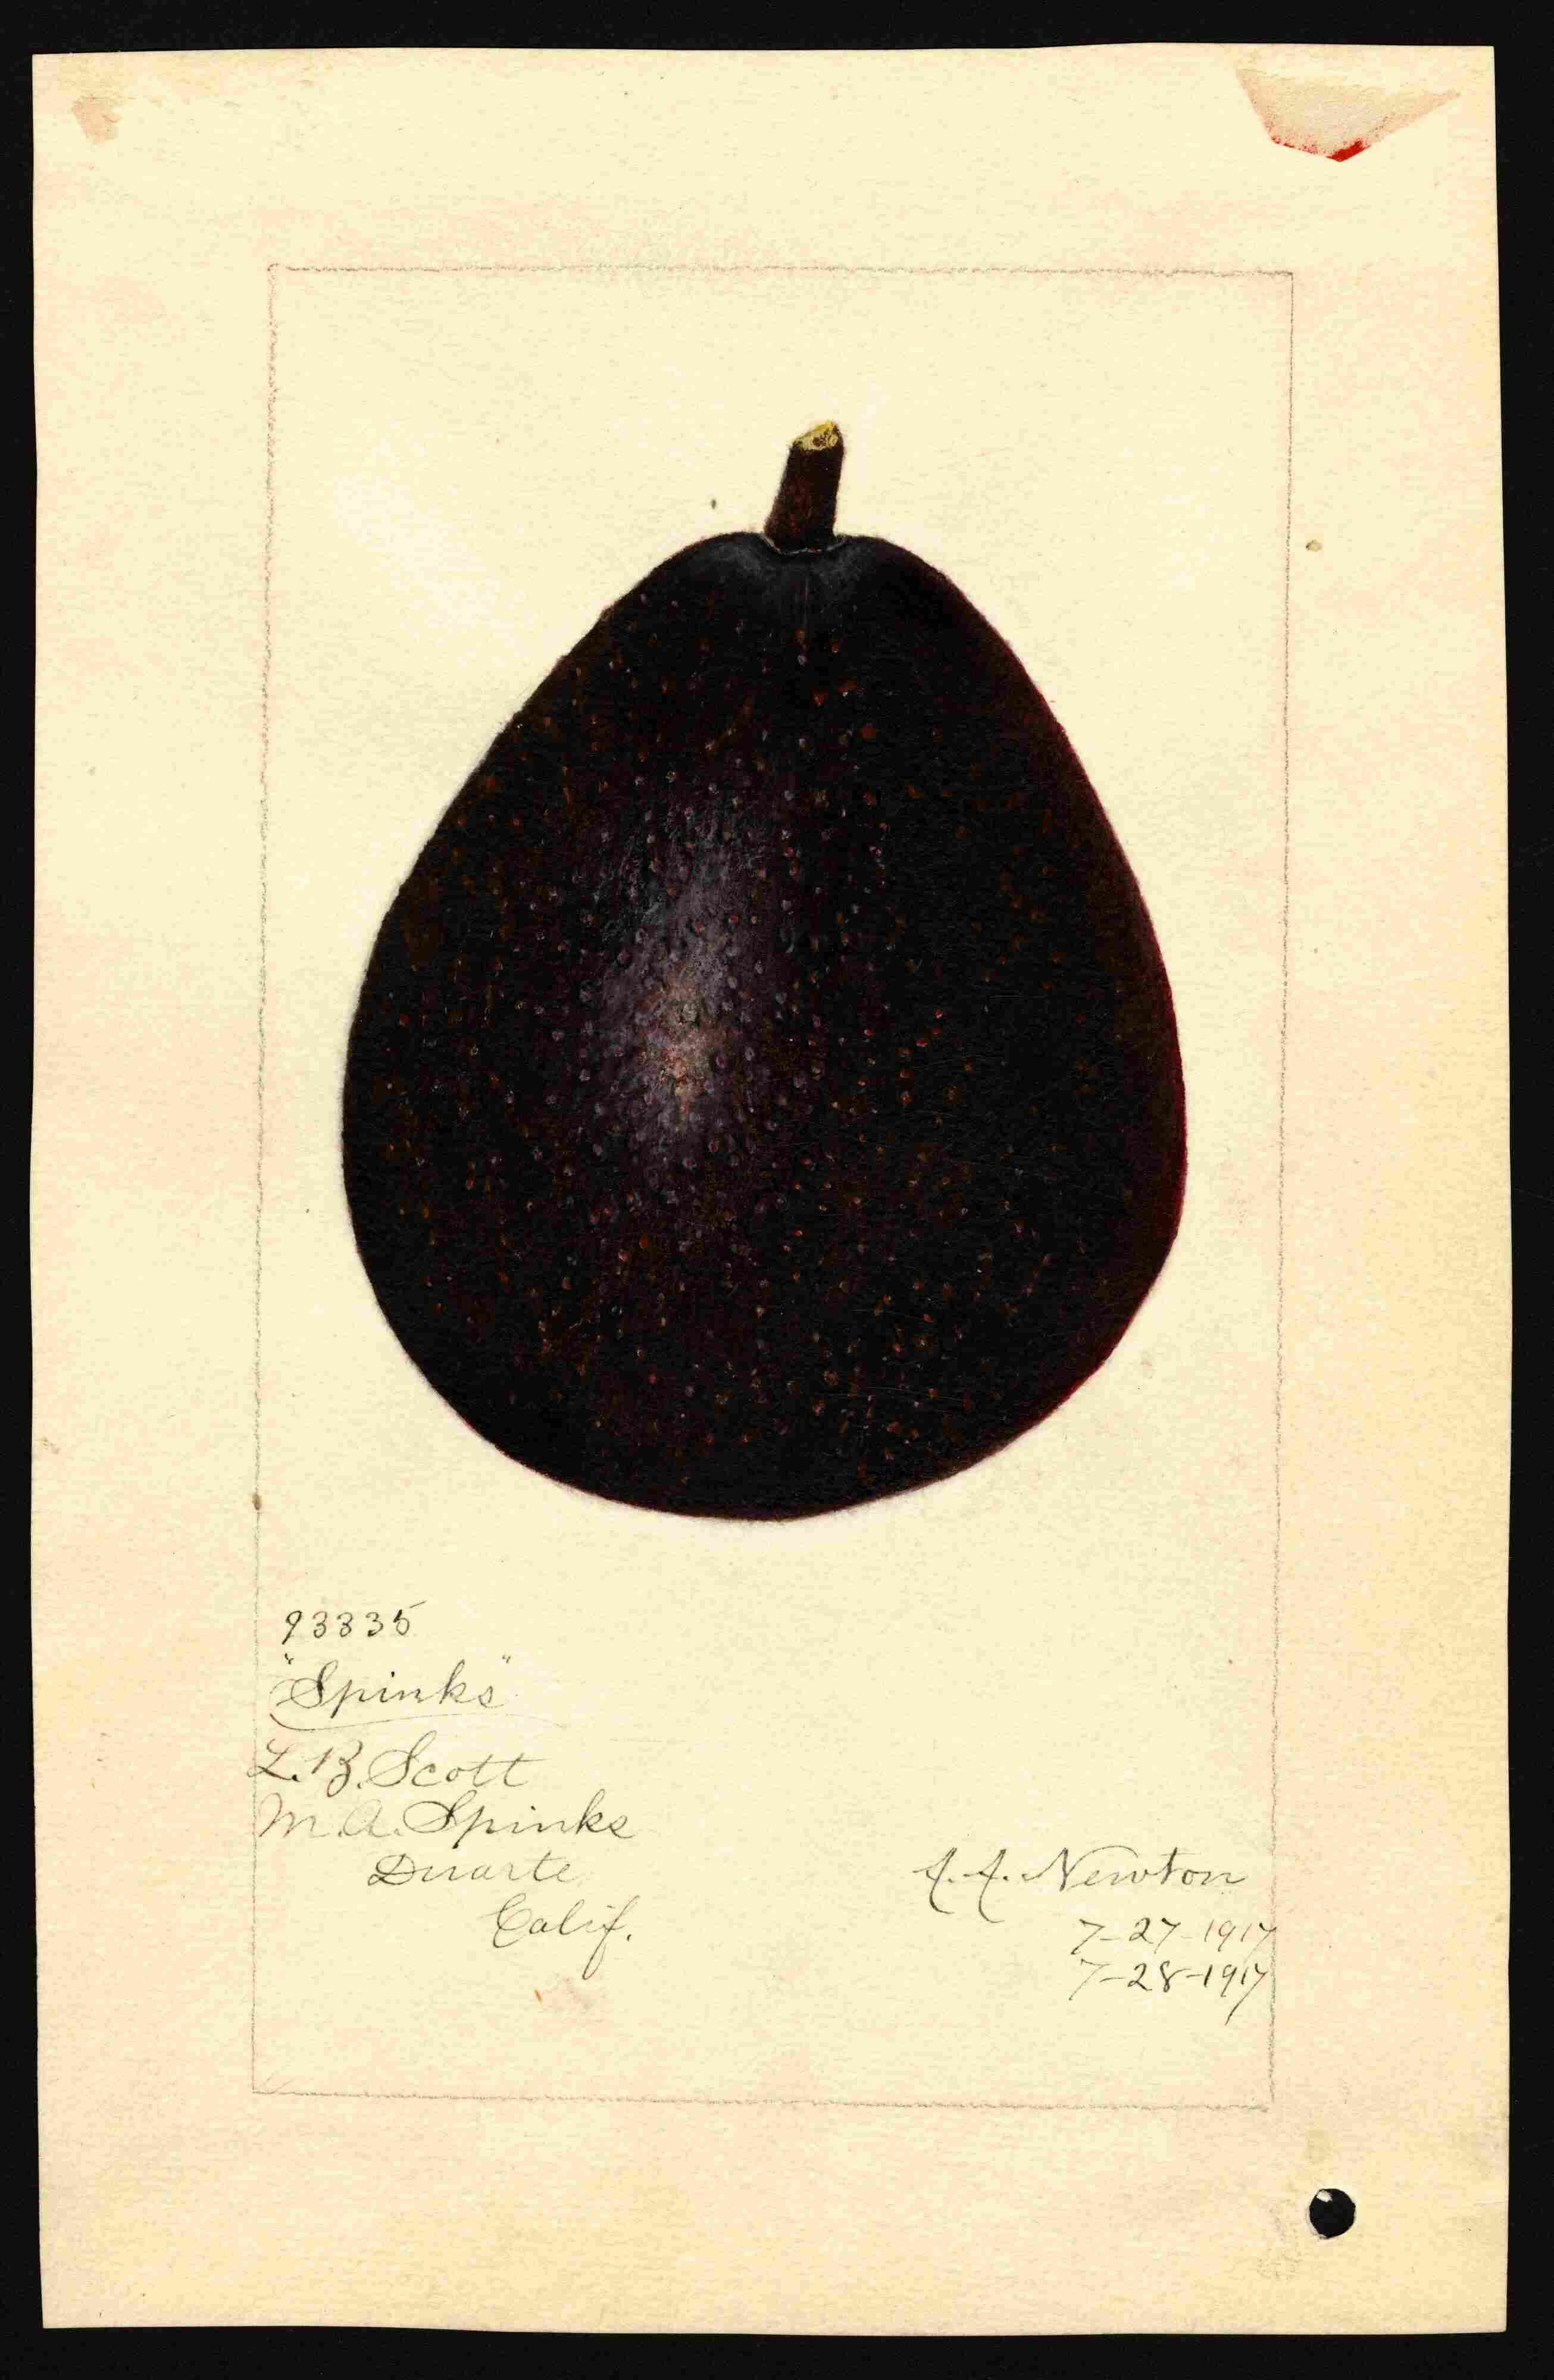 93335
"Spinks"
L.B. Scott
M.A. Spinks
Duarte
Calif.
A.A. Newton
7-27-1917
7-28-1917